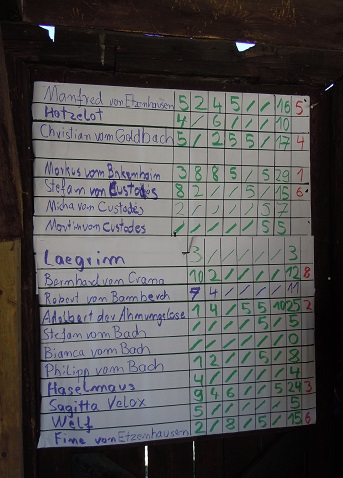 Manfred von Etzenhausen 5 2 4 5 / / 16 5
Hotzelot 4 / 6 / / / 10
Christian vom Goldbach 5 / 2 5 5 / 17 4
Markus vom Birkenhain 3 8 8 5 / 5 29 1
Stefan von Custodes 8 2 / / 5 / 15 6
Micha vom Custodes 2 / / / / 5 7
Martin vom Custodes / / / / / 5 5
Laegrim 3 / / / / / 3
Bernhard vom Crama 10 2 / / / / 12 8
Robert vom Bomberch 7 4 / / / / 11
Adelbert der Ahnungslose 1 4 / 5 5 10 25 2
Stefan vom Bach / / / / 5 / 5
Bianca vom Bach / / / / / / 0
Philipp vom Bach 1 2 / / 5 / 8
Haselmaus 4 / / / / / 4
Sagitta Velox 9 4 6 / / 5 24 3
Welf 5 / / / / / 5
Fine von Etzenhausen 2 / 8 / 5 / 15 6